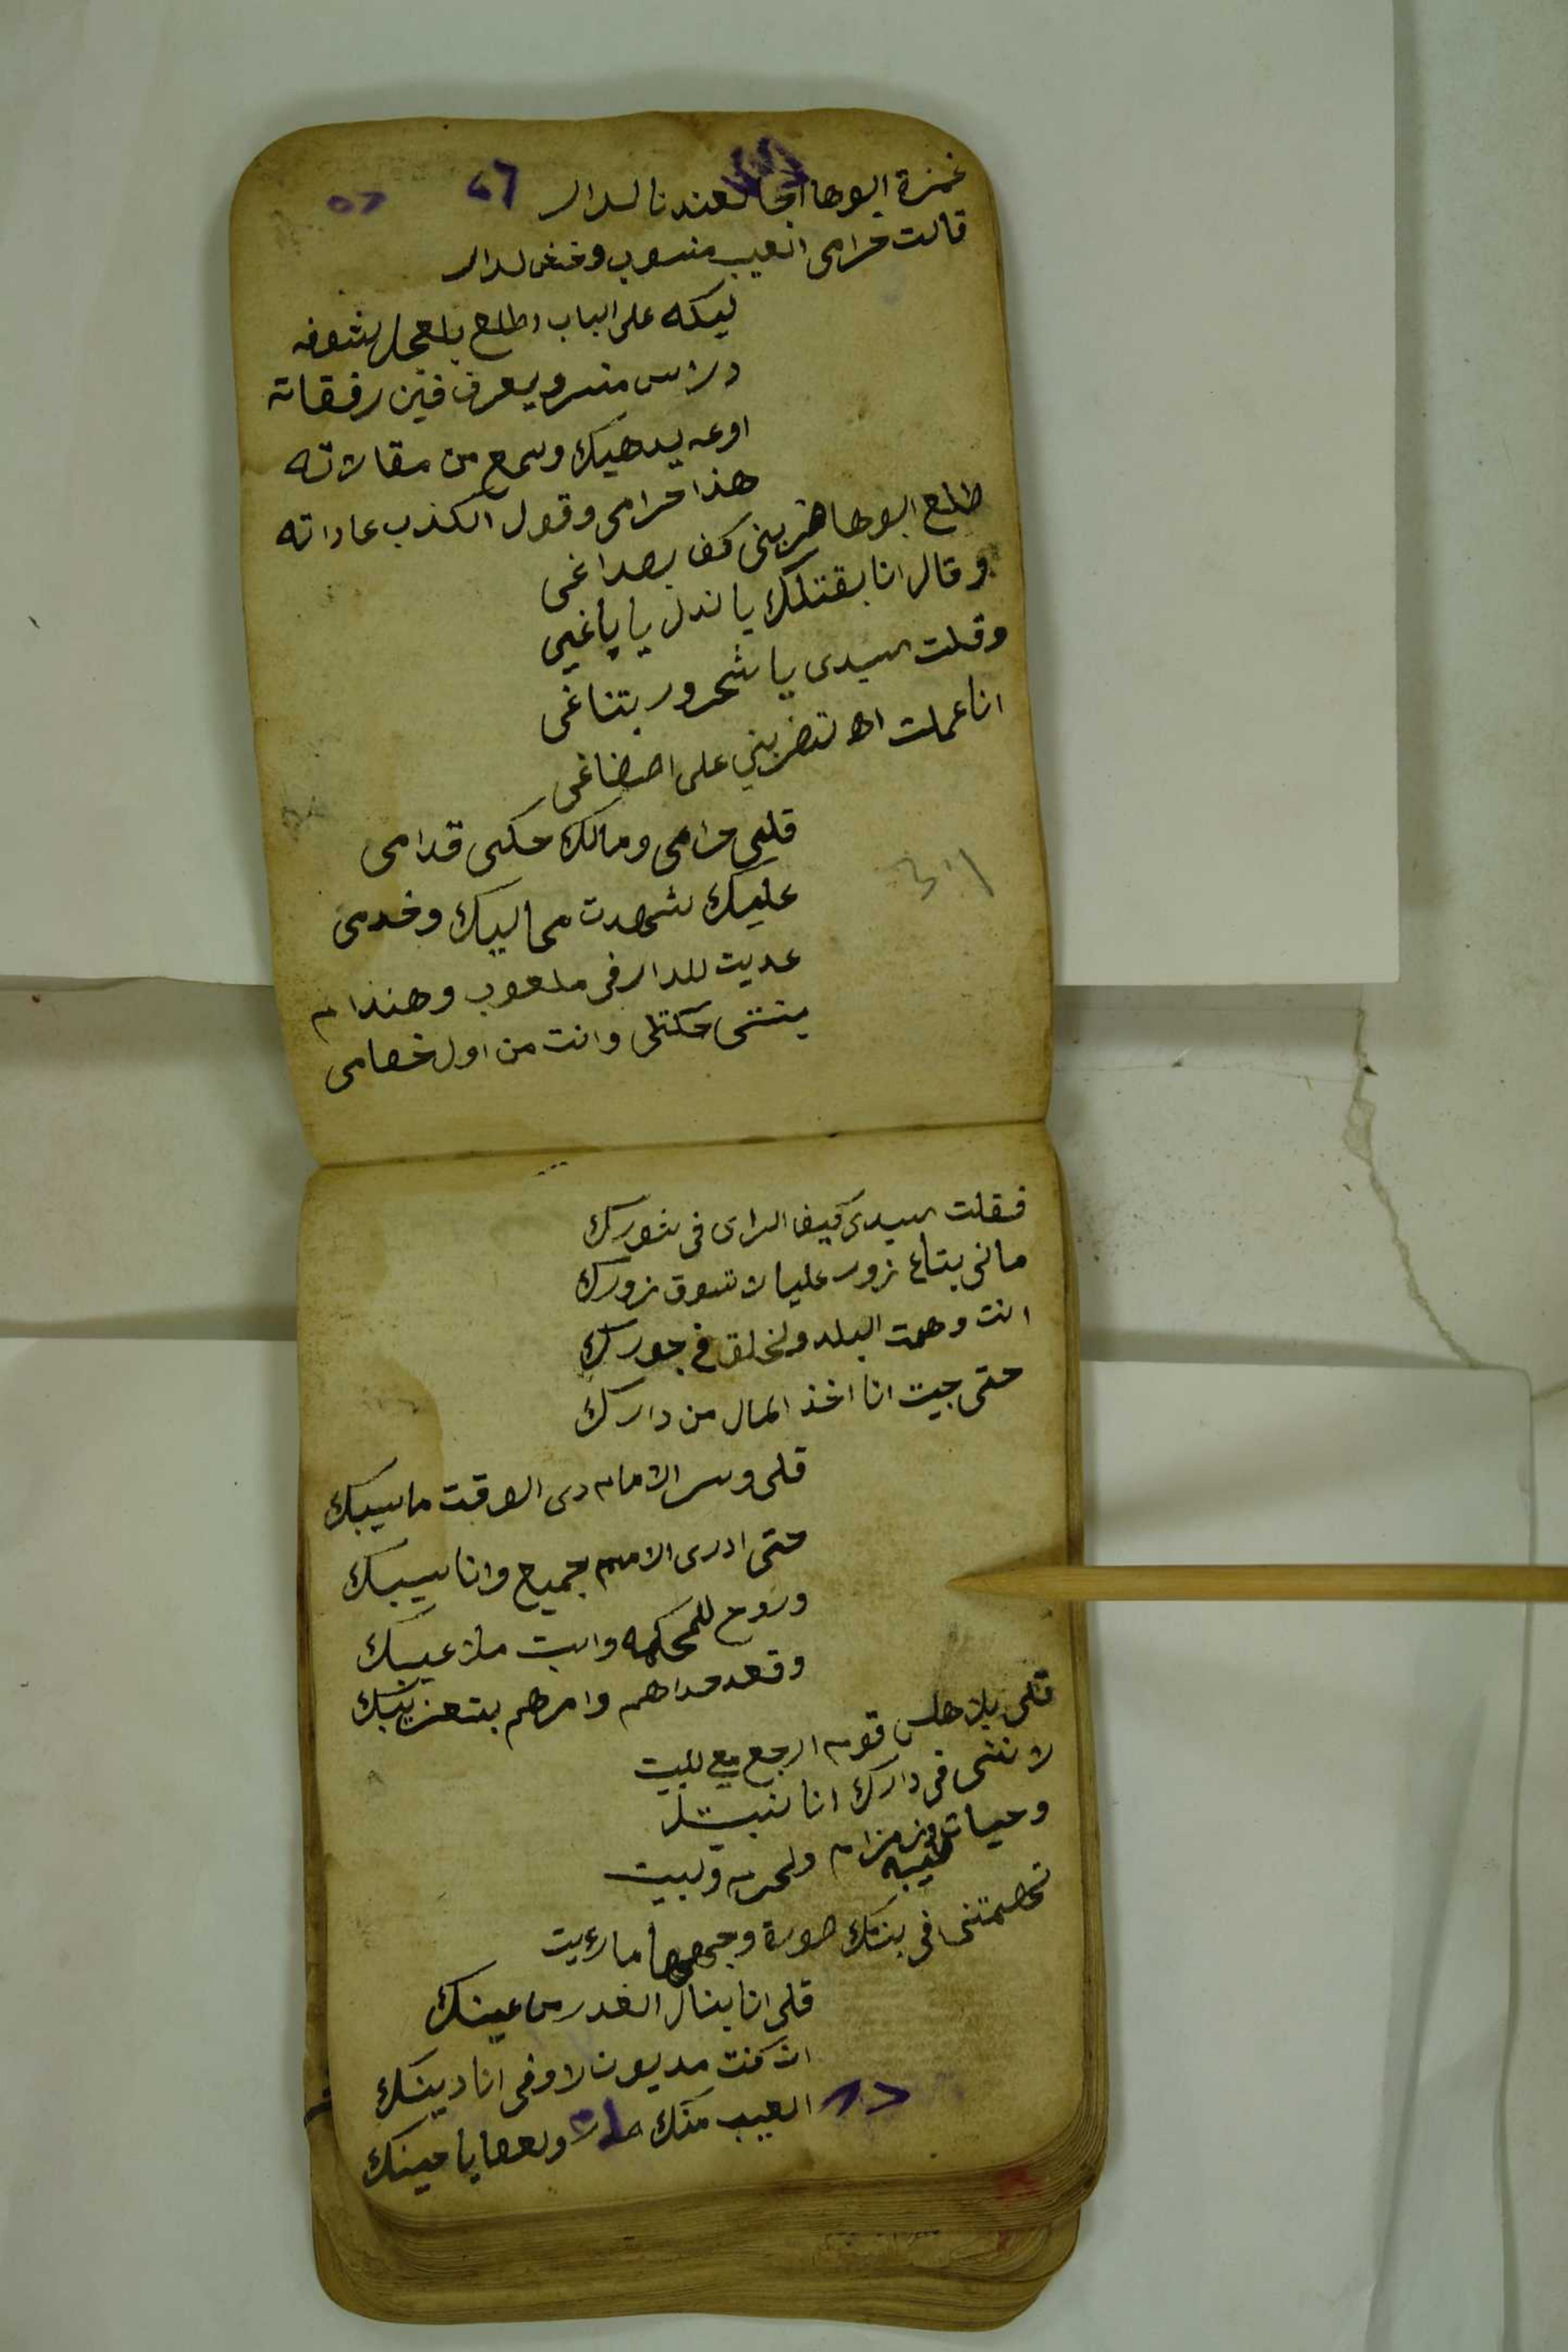 غمزة ابوها اجا لعندنا لدار
قالت حرامى العيب منسوب وخش لدار
ليكه على الباب اطلع بالعجل شوفه
وراس منسر ويعرف فين رفقاته
اوعه يدهيك وسمع من مقالاته
هذا حرامى وقول الكذب عاداته
طلع ابوها ضربنى كف بصداغى
وقال انا بقتلك يا ندل يا باغى
وقلت لسيدى يا شحرور بتناغى
انا عملت اه تضربني على اصضاغى
قلى حرامى ومالك حكى قدامى
عليك شهدت مماليك وخدمى
عديت للدار فى ملعوب وهندام
بنتى حكتلى وانت من اول خصامى
فقلت لسيدى كيف الراى فى شورك
مانى بتاع زور عليا لا تسوق زورك
انت وهمت البلد ولخلق فى جورك
حتى جيت انا اخذ المال من دارك
قلى وسر الامام دى الوقت ماسيبك
حتى ادرى الامم جميع وانا سيبك
وروح للمحكمه واثبت ملاعيبك
وقعد حداهم وامرهم بتعزيبك
قلى بلا هلس قوم ارجع معى للبيت
لا نتشى فى دارك انا نبيت
وحيات طيبه وزمزام ولحرم ولبيت
تخصمتنى فى بنتك صورة وجهها ما رءيت
قلى انا بنال الغدر من عينك
ان كنت مديون لاوفى انا دينك
العيب منك ولعصايا مينك